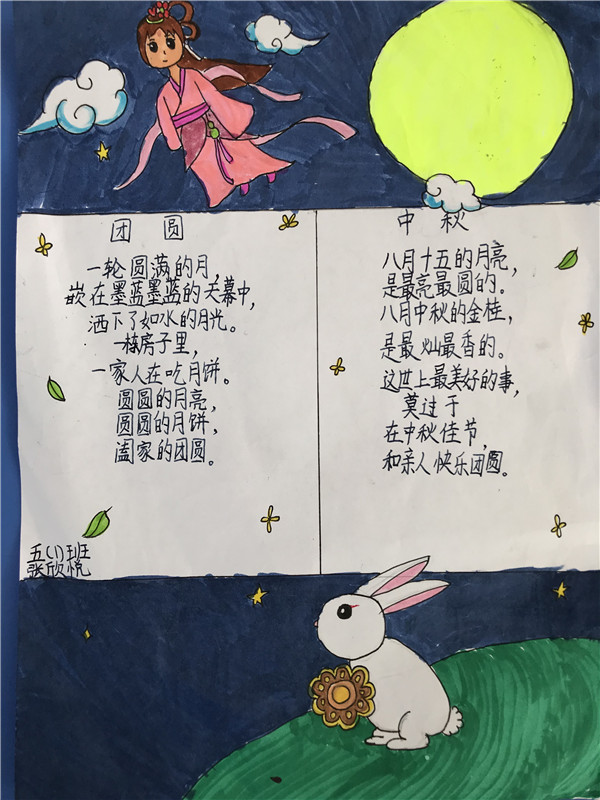 团圆
一轮圆满的月,
嵌在墨蓝墨蓝的天幕中,
洒下了如水的月光。
一栋房子里,
一家人在吃月饼。
圆圆的月亮,
圆圆的月饼,
阖家的团圆。
五(1)班
张欣悦
中秋
八月十五的月亮,
是最亮最圆的。
八月中秋的金桂,
是最灿最香的。
这世上最美好的事,
莫过于
在中秋佳节,
和亲人快乐团圆。